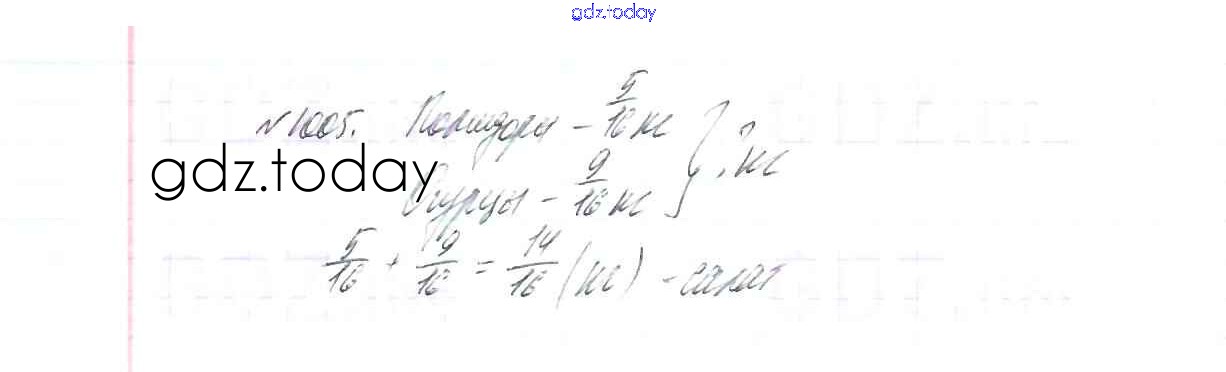 gdz.today
№1005. Помидоры - 5/16 кг } ? кг
gdz.today
Огурцы - 9/16 кг
5/16 + 9/16 = 14/16 (кг) - салат